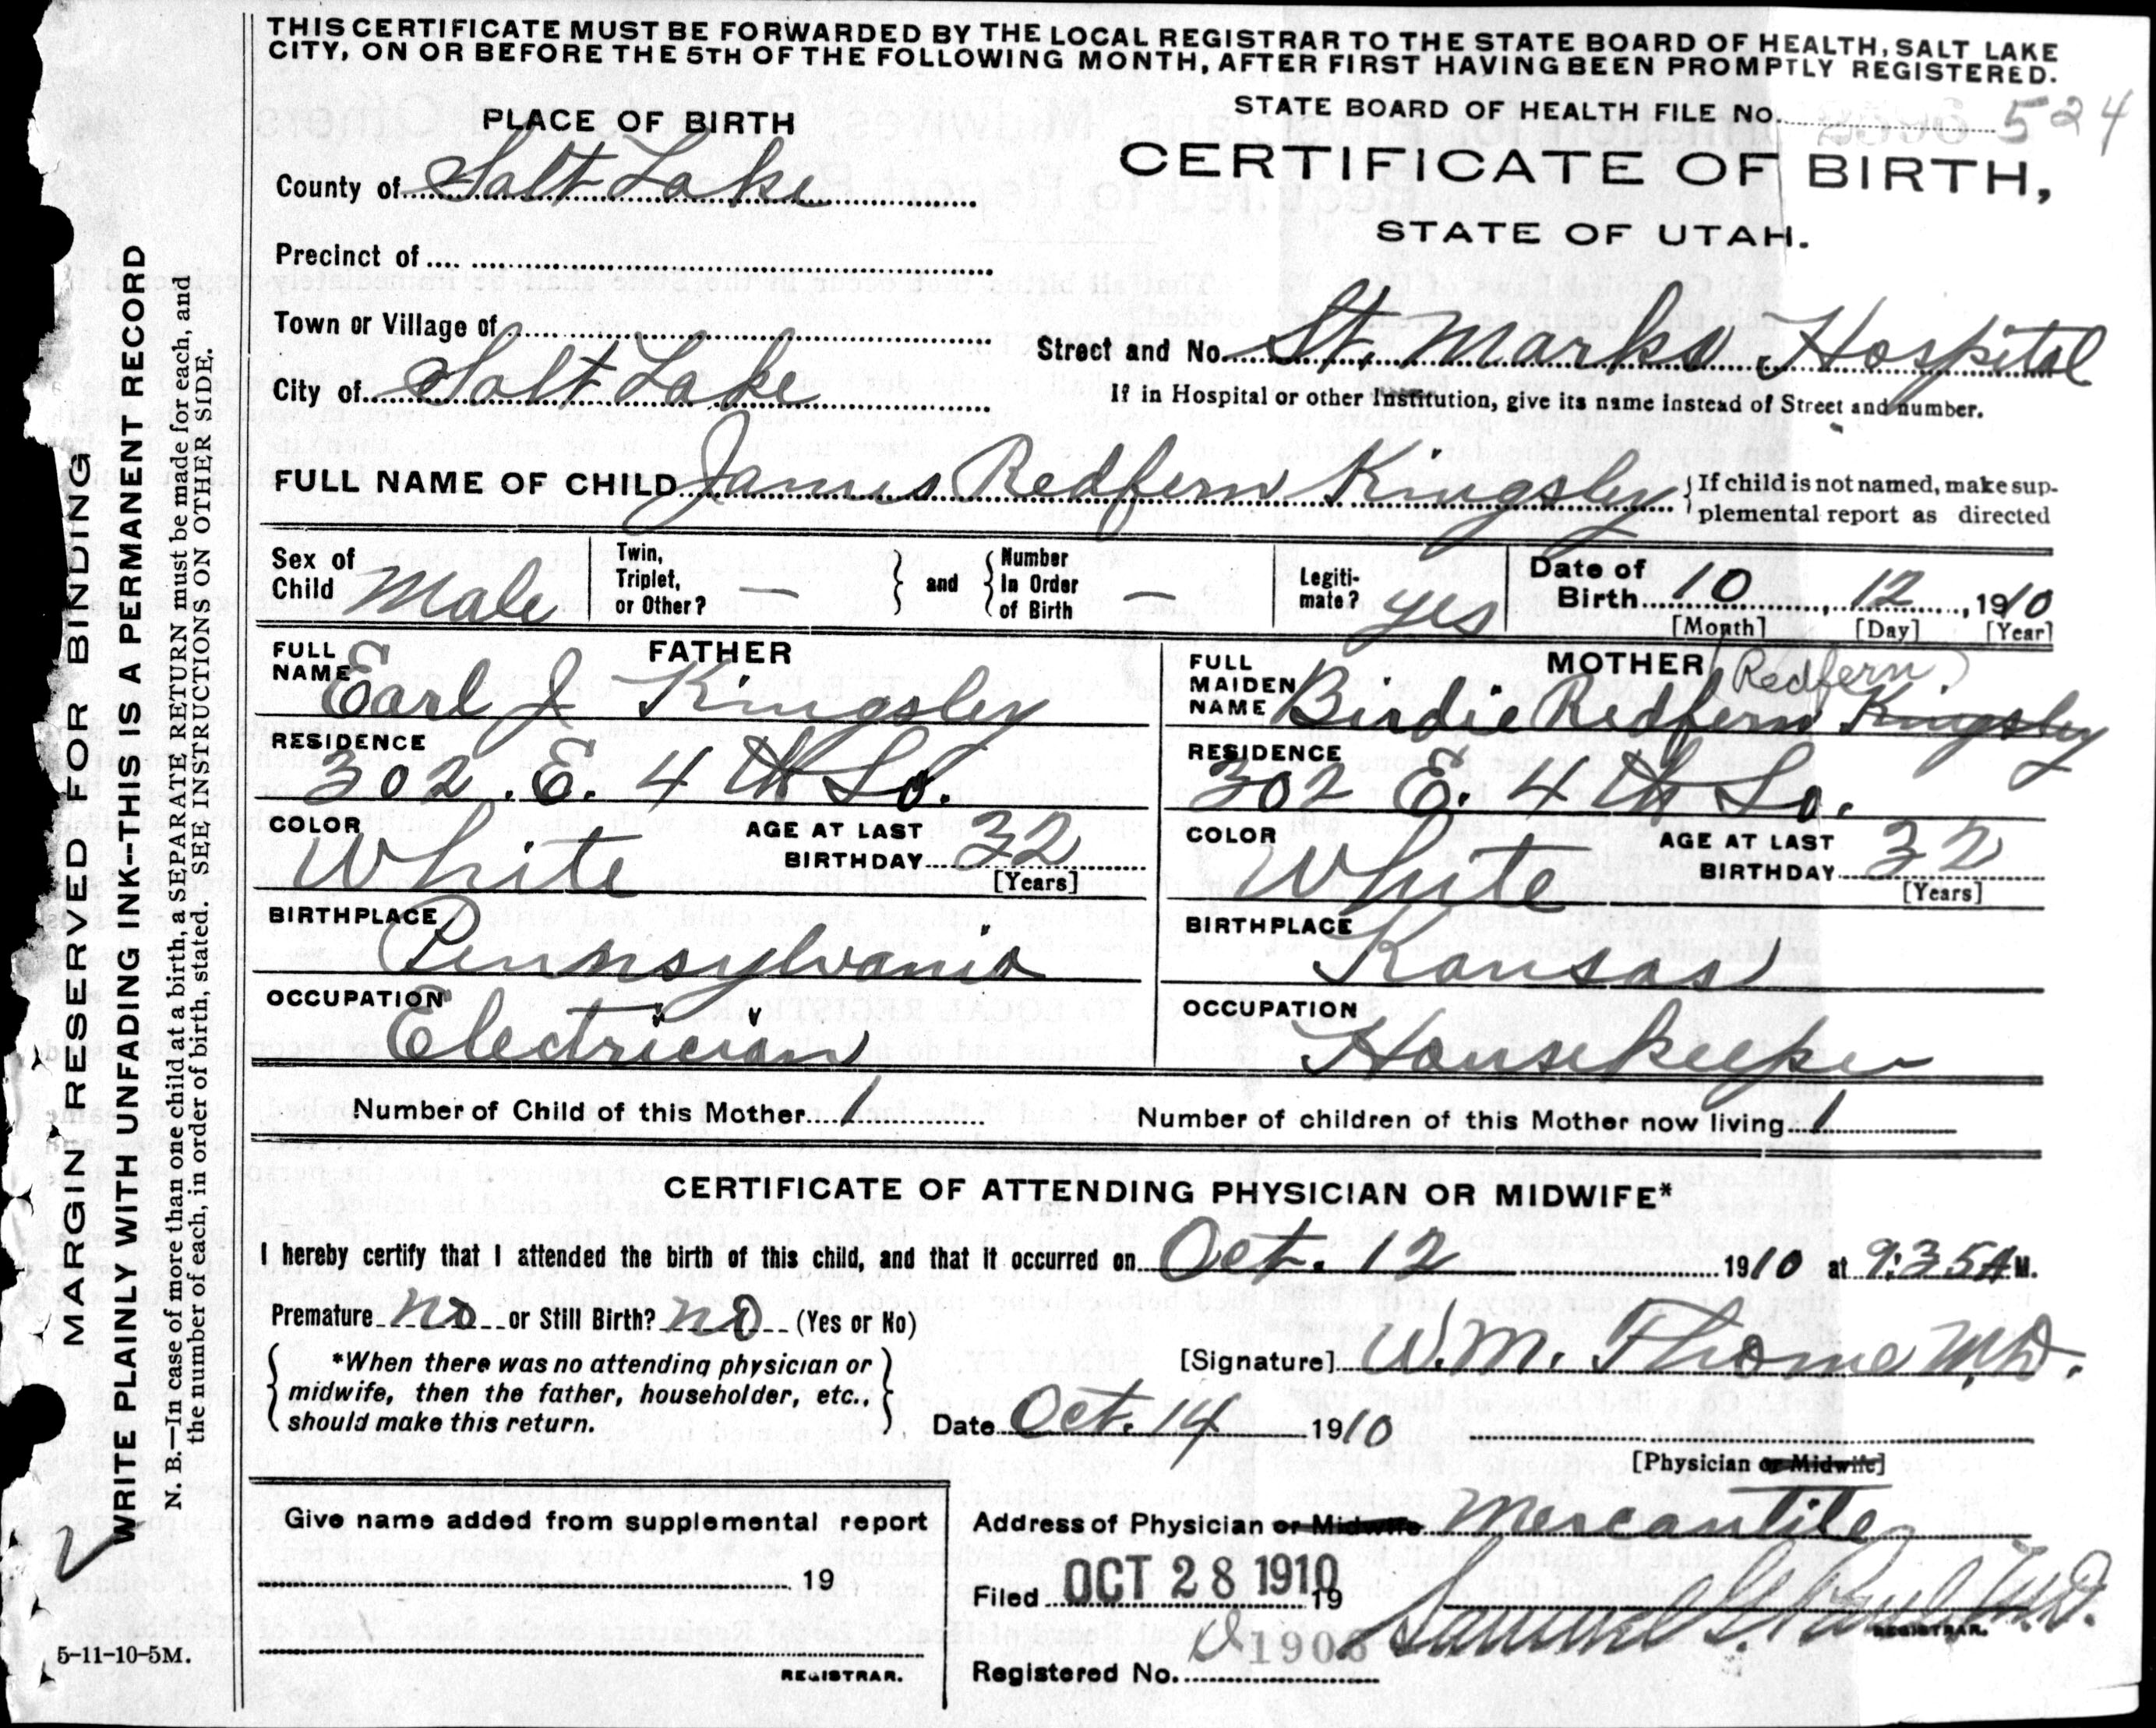 THIS CERTIFICATE MUST BE FORWARDED BY THE LOCAL REGISTRAR TO THE STATE BOARD OF HEALTH, SALT LAKE
CITY, ON OR BEFORE THE 5TH OF THE FOLLOWING MONTH, AFTER FIRST HAVING BEEN PROMPTLY REGISTERED.
STATE BOARD OF HEALTH FILE NO. 524
PLACE OF BIRTH
CERTIFICATE OF BIRTH,
STATE OF UTAH.
County of Salt Lake
Precinct of
Town or Village of
City of Salt Lake
Street and No. St. Marks Hospital
If in Hospital or other Institution, give its name instead of Street and number.
FULL NAME OF CHILD James Redfern Kingsley
If child is not named, make sup-
plemental report as directed
Sex of Child Male
Twin, Triplet, or Other? —
and
Number In Order of Birth —
Legiti-mate? yes
Date of Birth 10, 12, 1910
[Month] [Day] [Year]
FATHER
FULL NAME Earl J Kingsley
RESIDENCE
302. E. 4th So.
COLOR White
AGE AT LAST BIRTHDAY 32
[Years]
BIRTHPLACE Pennsylvania
OCCUPATION Electrician
MOTHER (Redfern)
FULL MAIDEN NAME Birdie Redfern Kingsley
RESIDENCE
302 E. 4th So.
COLOR White
AGE AT LAST BIRTHDAY 32
[Years]
BIRTHPLACE Kansas
OCCUPATION Housekeeper
Number of Child of this Mother 1
Number of children of this Mother now living 1
CERTIFICATE OF ATTENDING PHYSICIAN OR MIDWIFE*
I hereby certify that I attended the birth of this child, and that it occurred on Oct. 12 1910 at 9:35 A M.
Premature no or Still Birth? no (Yes or No)
*When there was no attending physician or
midwife, then the father, householder, etc.,
should make this return.
[Signature] W.M. Thorne M.D.
Date Oct. 14 1910
[Physician or Midwife]
Give name added from supplemental report
19
REGISTRAR.
Address of Physician or Midwife Mercantile
Filed OCT 28 1910 19
Samuel G. Paul M.D.
REGISTRAR.
Registered No. 1906
MARGIN RESERVED FOR BINDING
WRITE PLAINLY WITH UNFADING INK--THIS IS A PERMANENT RECORD
N. B.—In case of more than one child at a birth, a SEPARATE RETURN must be made for each, and
the number of each, in order of birth, stated. SEE INSTRUCTIONS ON OTHER SIDE.
5-11-10-5M.